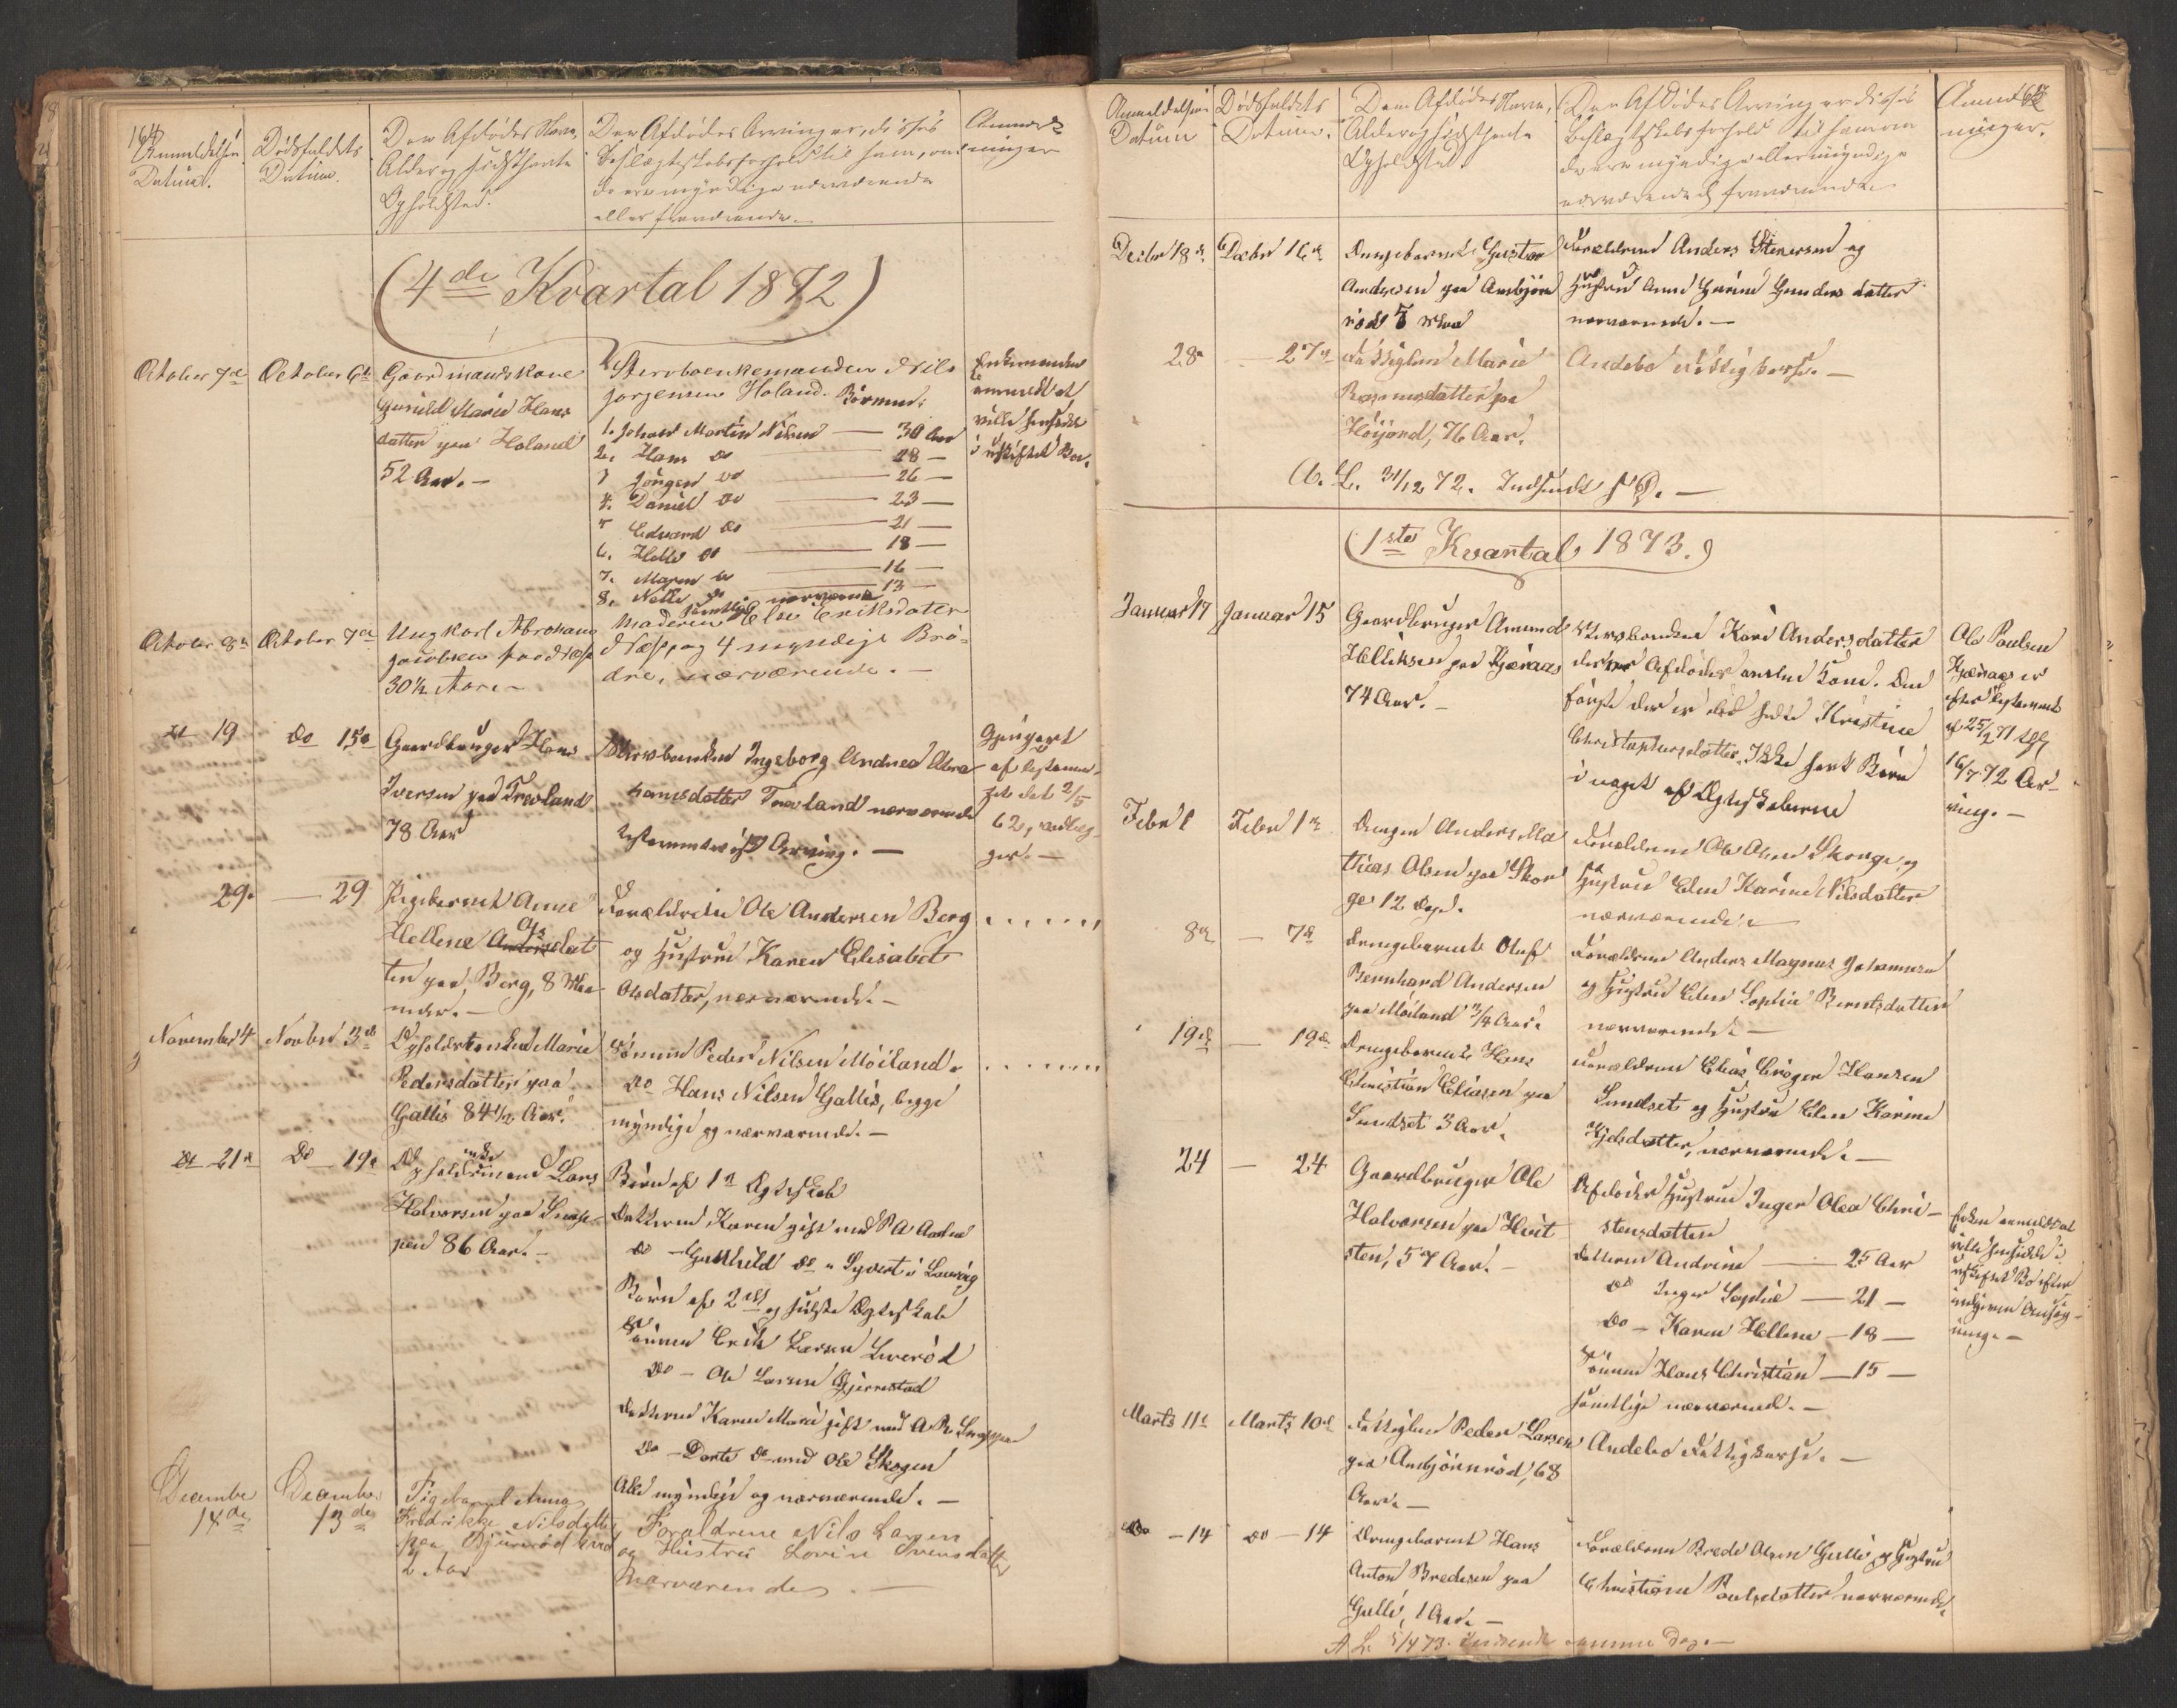 164
Anmeldelsens
Datum.
Dødsfaldets
Datum.
Den Afdødes Navn,
Alder og sidsthavte
Opholdsted.
Den Afdødes Arvinger, disses
Beslægtskabsforhold til ham, om
de ere myndige nærværende
eller fraværende.
Anmærk
ninger
(4de Kvartal 1872)
October 7de
October 6te
Gaardmandskone
Gunild Marie Hans
datter paa Holand
52 Aar. —
Sterboenkemanden Nils
Jørgensen Holand. Børnene:
1. Johan Martin Nilsen — 30 Aar
2. Hans do — 28 —
3 Jörgen do — 26 —
4. Daniel do — 23 —
5 Edvard do — 21 —
6. Helle do — 18 —
7. Maren do — 16 —
8. Nelle do — 13 —
samtlige nærværende
Enkemanden
anmeldt at
ville hensidde
i uskiftet Bo.
October 8de
October 7de
Ungkarl Abraham
Jacobsen paa Næss
30½ Aar. —
Moderen Else Eriksdatter
Næss, og 4 myndige Brø-
dre, nærværende. —
dt 19
do 15de
Gaardbruger Hans
Iversen paa Trevland
78 Aar
Sterboenken Ingeborg Andrea Abra
hamsdatter Trevland nærværende
testamentarisk Arving. —
Gjenpart
af testamen-
tet dat 2/5
62, vedlæg-
ges. —
29de
— 29
Pigebarnet Anne
Hellene Andersdat Ols
ter paa Berg, 8 Maa
neder. —
Forældrene Ole Andersen Berg
og Hustru Karen Elisabet
Olsdatter, nærværende. —
November 4
Novber 3de
Opholdsenken Marie
Pedersdatter paa
Gallis 84½ Aar.
Sönnen Peder Nilsen Möiland.
do Hans Nilsen Gallis, begge
myndige og nærværende. —
dt 21de
Do 19de
Opholdsmand Lars enke
Halvorsen paa Snap-
pen 86 Aar. —
Børn af 1te Ægteskab
Datteren Karen gift med
do — Gunhild do Syvert i Laurvig
Børn af 2det og sidste Ægteskab
Sönnen Erik Larsen Liverød
Do — Ole Larsen Gjerrestad
Datteren Karen Marie gift med A. R. Snappen
do — Dorte do med Ole Skogen
Alle myndige og nærværende. —
December
14de
December
13de
Pigebarnet Anna
Fredrikke Nilsdatter
paa Bjuerød
2 Aar
Foraldrene Nils Larsen
og Hustru Lovise Svensdatter
Nærværende. —
Anmeldelsens
Datum
Dødsfaldets
Datum.
Den Afdødes Navn,
Alder og sidsthavte
Opholdsted.
Den Afdødes Arvinger disses
beslægtskabsforhold til ham om
de ere myndige eller umyndige
nærværende & fraværende
Anmærk
ninger.
Decbr 18de
Decbr 16de
Drengebarnet Gustav
Andersen paa Ambjørn
rød 5 Uker
Forældrene Anders Stenersen og
Hustru Anne Gurine Gundersdatter
nærværende. —
28de
— 27de
Fattiglem Marie
Rasmusdatter paa
Höijord, 76 Aar.
Andebo Fattigkasse. —
A. L. 31/12 72. Indsendt s. D. —
(1ste Kvartal 1873.)
Januar 17
Januar 15
Gaardbruger Amund
Helliksen paa Kjæraas
74 Aar. —
Sterboenken Kari Andersdatter
der var Afdødes anden Kone. Den
første der er død hedte Kristine
Christophersdatter. Ikke havt Børn
i noget af Ægteskaberne
Ole Paulsen
Kjæraas er
efter testament
af 25/2 71
16/7 72 Ar-
ving. —
Febr 1
Febr 1de
Drengen Anders Ma
thias Olsen paa Skor
ge 12 Dage.
Forældrene Ole Olsen Skorge og
Hustru Elen Karine Nilsdatter
nærværende. —
8de
— 7de
Drengebarnet Oluf
Bernhard Andersen
paa Möiland 3/4 Aar.
Forældrene Anders Magnus Johannesen
og Hustru Elen Sophie Berntsdatter
nærværende. —
19de
— 19de
Drengebarnet Hans
Christian Eliasen paa
Sundset 3 Aar.
Forældrene Elias Krøger Hansen
Sundset og Hustru Elen Karine
Kjelsdatter, nærværende. —
24
— 24
Gaardbruger Ole
Halvorsen paa Hvit
sten, 57 Aar. —
Afdødes Hustru Inger Olea Chri-
stensdatter
datteren Andrine — 25 Aar
do Inger Sophie — 21 —
do — Karen Hellene — 18 —
Sönnen Hans Christian — 15 —
samtlige nærværende. —
Enken anmeldt at
ville hensidde i
uskiftet Bo efter
indgiven Ansøg-
ning. —
Marts 11te
Marts 10de
Fattiglem Peder Larsen
paa Ambjörnröd, 68
Aar. —
Andebo Fattigkasse. —
Do — 14
do — 14
Drengebarnet Hans
Anton Bredesen paa
Gulli, 1 Aar. —
Forældrene Brede Olsen Gulli og Hustru
Christiane Paulsdatter nærværende.
A L. 5/4 73. Indsendt samme Dag. —